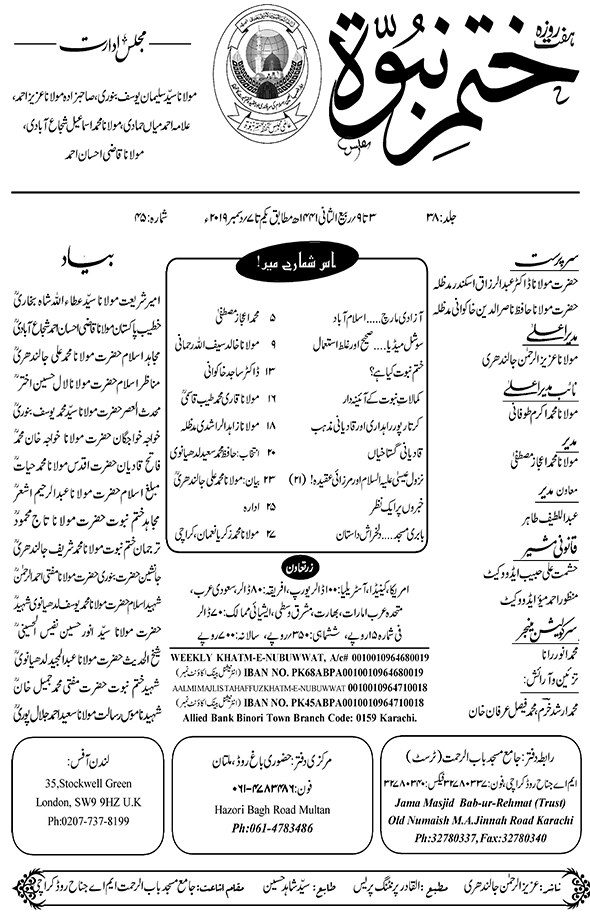 ہفت روزہ
ختم نبوۃ
مجلس ادارت
مولانا سیّد سلیمان یوسف بنوری، صاحبزادہ مولانا عزیز احمد،
علامہ احمد میاں حمادی، مولانا محمد اسماعیل شجاع آبادی،
مولانا قاضی احسان احمد
جلد: ۳۸
۳ تا ۹ ربیع الثانی ۱۴۴۱ھ مطابق یکم تا ۷ دسمبر ۲۰۱۹ء
شمارہ: ۴۵
سرپرست
حضرت مولانا ڈاکٹر عبدالرزاق اسکندر مدظلہ
حضرت مولانا حافظ ناصر الدین خاکوانی مدظلہ
مدیر اعلیٰ
مولانا عزیز الرحمٰن جالندھری
نائب مدیر اعلیٰ
مولانا محمد اکرم طوفانی
مدیر
مولانا محمد اعجاز مصطفیٰ
معاون مدیر
عبداللطیف طاہر
قانونی مشیر
حشمت علی حبیب ایڈووکیٹ
منظور احمد میؤ ایڈووکیٹ
سرکولیشن منیجر
محمد انور رانا
تزئین و آرائش:
محمد ارشد خرم، محمد فیصل عرفان خان
اس شمارے میں!
آزادی مارچ.....اسلام آباد ۵ محمد اعجاز مصطفیٰ
سوشل میڈیا.... صحیح اور غلط استعمال ۹ مولانا خالد سیف اللہ رحمانی
ختم نبوت کیا ہے؟ ۱۳ ڈاکٹر ساجد خاکوانی
کمالات نبوت کے آئینہ دار ۱۶ مولانا قاری محمد طیب قاسمیؒ
کرتارپور راہداری اور قادیانی مذہب ۱۸ مولانا زاہد الراشدی مدظلہ
قادیانی گستاخیاں ۲۰ انتخاب: حافظ محمد سعید لدھیانوی
نزول عیسیٰ علیہ السلام اور مرزائی عقیدہ! (۲۱) ۲۳ بیان: مولانا محمد علی جالندھریؒ
خبروں پر ایک نظر ۲۵ ادارہ
بابری مسجد.... دلخراش داستان ۲۷ مولانا محمد زکریا نعمان، کراچی
زرتعاون
امریکا، کینیڈا، آسٹریلیا: ۱۰۰ ڈالر یورپ، افریقہ: ۸۰ ڈالر، سعودی عرب،
متحدہ عرب امارات، بھارت، مشرق وسطیٰ، ایشیائی ممالک: ۷۰ ڈالر
فی شمارہ ۱۵ روپے، ششماہی: ۳۵۰ روپے، سالانہ: ۷۰۰ روپے
WEEKLY KHATM-E-NUBUWWAT, A/c# 0010010964680019
IBAN NO. PK68ABPA0010010964680019 (انٹرنیشنل بینک اکاؤنٹ نمبر)
AALMIMAJLISTAHAFFUZKHATM-E-NUBUWWAT 0010010964710018
IBAN NO. PK45ABPA0010010964710018 (انٹرنیشنل بینک اکاؤنٹ نمبر)
Allied Bank Binori Town Branch Code: 0159 Karachi.
بیاد
امیر شریعت مولانا سیّد عطاء اللہ شاہ بخاریؒ
خطیب پاکستان مولانا قاضی احسان احمد شجاع آبادیؒ
مجاہد اسلام حضرت مولانا محمد علی جالندھریؒ
مناظر اسلام حضرت مولانا لال حسین اخترؒ
محدث العصر حضرت مولانا سیّد محمد یوسف بنوریؒ
خواجہ خواجگان حضرت مولانا خواجہ خان محمدؒ
فاتح قادیان حضرت اقدس مولانا محمد حیاتؒ
مبلغ اسلام حضرت مولانا عبدالرحیم اشعرؒ
مجاہد ختم نبوت حضرت مولانا تاج محمودؒ
ترجمان ختم نبوت مولانا محمد شریف جالندھریؒ
جانشین حضرت بنوری حضرت مولانا مفتی احمد الرحمٰنؒ
شہید اسلام حضرت مولانا محمد یوسف لدھیانوی شہیدؒ
حضرت مولانا سیّد انور حسین نفیس الحسینیؒ
شیخ الحدیث حضرت مولانا عبدالمجید لدھیانویؒ
شہید ختم نبوت حضرت مفتی محمد جمیل خانؒ
شہید ناموس رسالت مولانا سعید احمد جلال پوریؒ
رابطہ دفتر: جامع مسجد باب الرحمت (ٹرسٹ)
ایم اے جناح روڈ کراچی، فون: ۳۲۷۸۰۳۳۷ فیکس: ۳۲۷۸۰۳۴۰
Jama Masjid Bab-ur-Rehmat (Trust)
Old Numaish M.A.Jinnah Road Karachi
Ph:32780337, Fax:32780340
مرکزی دفتر: حضوری باغ روڈ، ملتان
فون: ۰۶۱-۴۷۸۳۴۸۶
Hazori Bagh Road Multan
Ph:061-4783486
لندن آفس:
35,Stockwell Green
London, SW9 9HZ U.K
Ph:0207-737-8199
ناشر: عزیز الرحمٰن جالندھری مطبع: القادر پرنٹنگ پریس طابع: سیّد شاہد حسین مقام اشاعت: جامع مسجد باب الرحمت ایم اے جناح روڈ کراچی